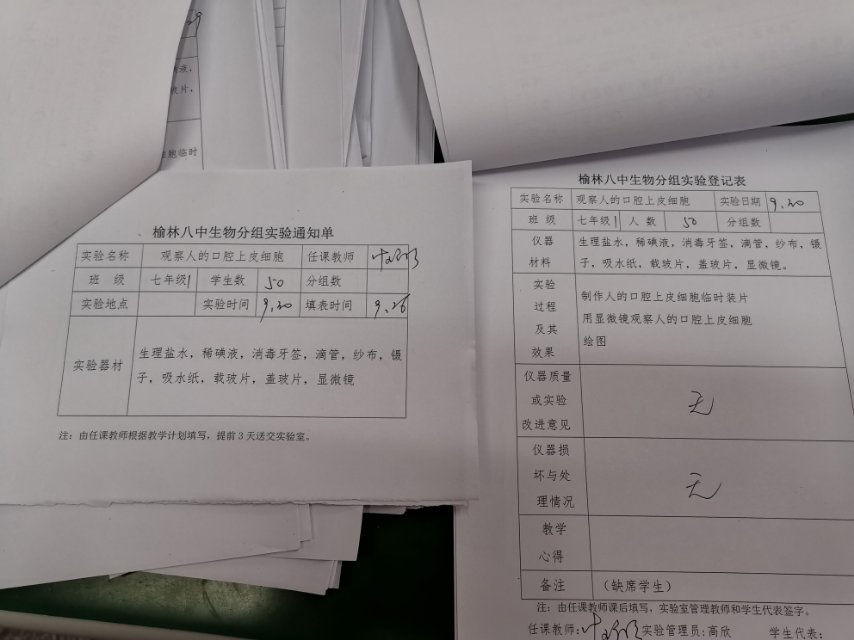 胞临时
榆林八中生物分组实验通知单
实验名称 观察人的口腔上皮细胞 任课教师
班 级 七年级1 学生数 50 分组数
实验地点 实验时间 9.20 填表时间 9.26
实验器材
生理盐水，稀碘液，消毒牙签，滴管，纱布，镊
子，吸水纸，载玻片，盖玻片，显微镜
注：由任课教师根据教学计划填写，提前3天送交实验室。
榆林八中生物分组实验登记表
实验名称 观察人的口腔上皮细胞 实验日期 9.20
班 级 七年级1 人 数 50 分组数
仪器
材料
生理盐水，稀碘液，消毒牙签，滴管，纱布，镊
子，吸水纸，载玻片，盖玻片，显微镜。
实验
过程
及其
效果
制作人的口腔上皮细胞临时装片
用显微镜观察人的口腔上皮细胞
绘图
仪器质量
或实验
改进意见
无
仪器损
坏与处
理情况
无
教学
心得
备注 （缺席学生）
注：由任课教师课后填写，实验室管理教师和学生代表签字。
任课教师： 实验管理员：高欣 学生代表：